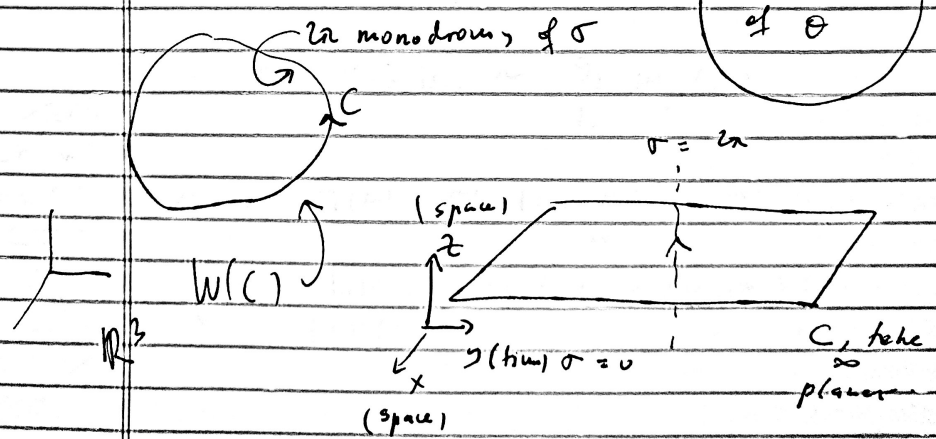 2π monodromy of σ
of θ
C
σ = 2π
(space)
z
W(C)
ℝ³
y (time) σ = 0
x
(space)
C, take
∞
plane